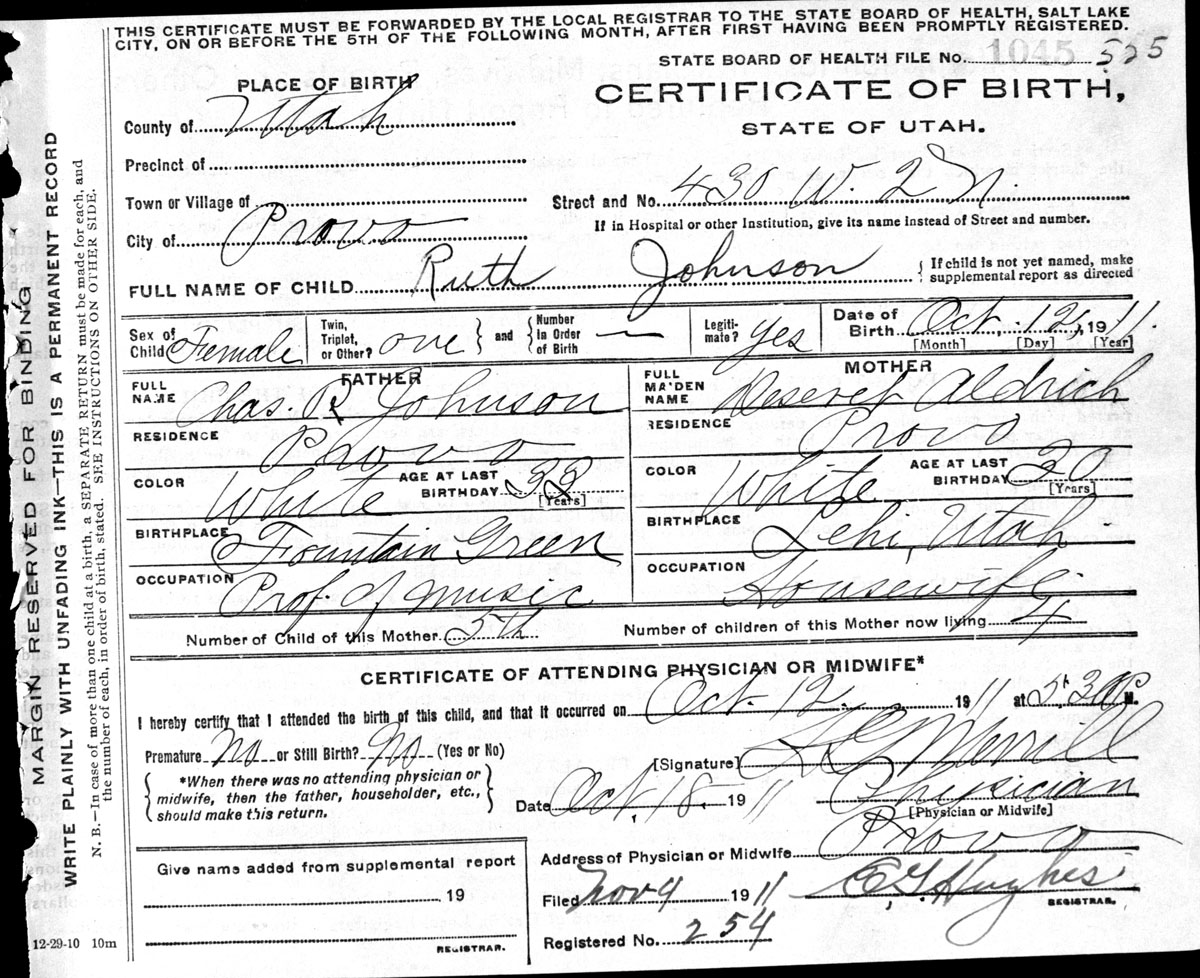 THIS CERTIFICATE MUST BE FORWARDED BY THE LOCAL REGISTRAR TO THE STATE BOARD OF HEALTH, SALT LAKE
CITY, ON OR BEFORE THE 5TH OF THE FOLLOWING MONTH, AFTER FIRST HAVING BEEN PROMPTLY REGISTERED.
STATE BOARD OF HEALTH FILE No. 1045 525
PLACE OF BIRTH
CERTIFICATE OF BIRTH,
STATE OF UTAH.
County of Utah
Precinct of
Town or Village of
Street and No. 430 W. 2 N.
City of Provo
If in Hospital or other Institution, give its name instead of Street and number.
FULL NAME OF CHILD Ruth Johnson { If child is not yet named, make
supplemental report as directed
Sex of Child Female Twin, Triplet, or Other? one } and { Number In Order of Birth — Legiti-mate? Yes Date of Birth Oct. 12, 1911.
[Month] [Day] [Year]
FATHER MOTHER
FULL NAME Chas. R. Johnson FULL MAIDEN NAME Deseret Aldrich
RESIDENCE Provo RESIDENCE Provo
COLOR White AGE AT LAST BIRTHDAY 33 [Years] COLOR White AGE AT LAST BIRTHDAY [Years]
BIRTHPLACE Fountain Green BIRTHPLACE Lehi, Utah.
OCCUPATION Prof. of Music OCCUPATION Housewife
Number of Child of this Mother 5th Number of children of this Mother now living 4
CERTIFICATE OF ATTENDING PHYSICIAN OR MIDWIFE*
I hereby certify that I attended the birth of this child, and that it occurred on Oct. 12. 1911 at 5:30 M.
Premature No or Still Birth? No (Yes or No)
[Signature] Merrill
{ *When there was no attending physician or
midwife, then the father, householder, etc.,
should make this return. }
Date Oct. 18. 1911 Physician
[Physician or Midwife]
Address of Physician or Midwife Provo
Give name added from supplemental report
19
REGISTRAR.
Filed Nov 9 1911 Hughes
REGISTRAR.
Registered No. 254
12-29-10 10m
MARGIN RESERVED FOR BINDING
WRITE PLAINLY WITH UNFADING INK—THIS IS A PERMANENT RECORD
N. B.—In case of more than one child at a birth, a SEPARATE RETURN must be made for each, and
the number of each, in order of birth, stated. SEE INSTRUCTIONS ON OTHER SIDE.